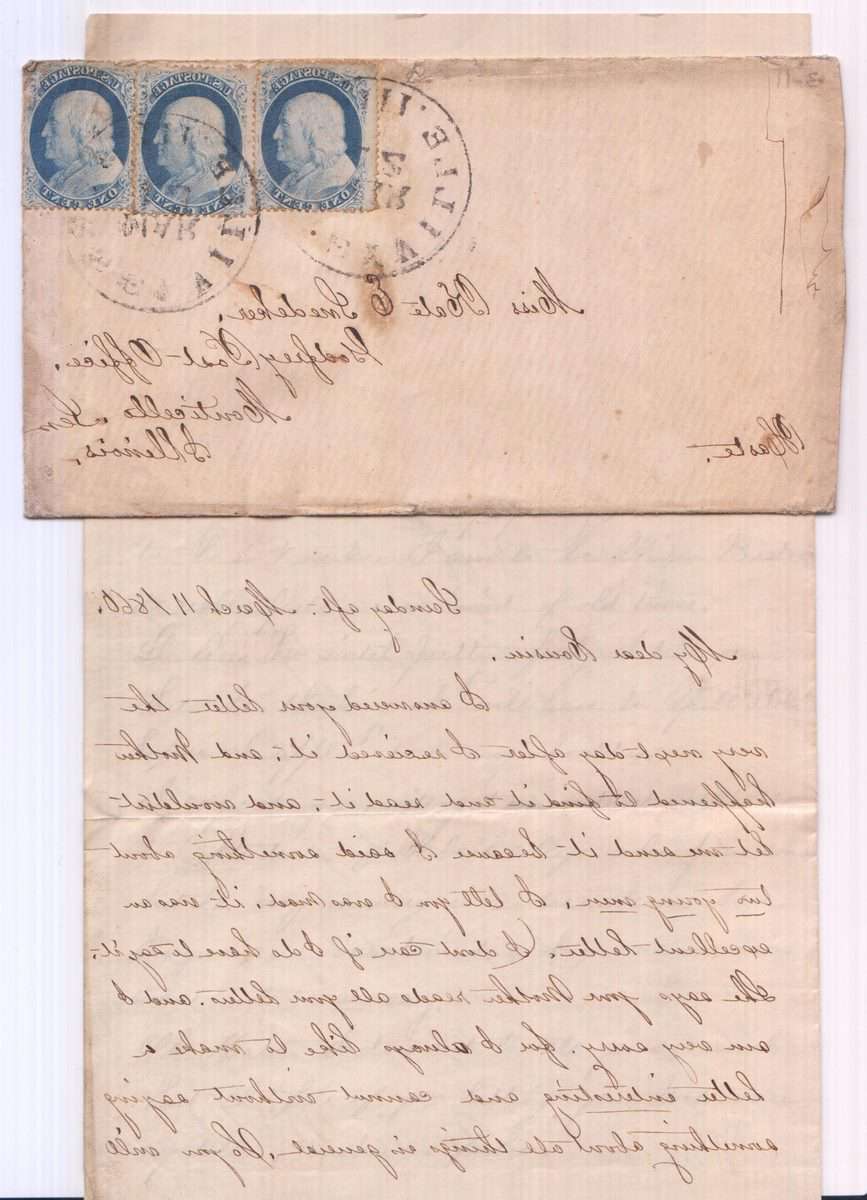 U.S. POSTAGE U.S. POSTAGE U.S. POSTAGE
ONE CENT. ONE CENT. ONE CENT.
MAR
MAR
Miss Kate E Snedeker,
Godfrey Post-Office,
Monticello Sem
Illinois,
Haste.
Sunday aft. March 11/1860.
My dear Cousin,
I answered your letter the
very next day after I received it, and Mother
happened to find it and read it, and wouldn't
let me send it because I said something about
two young men, I tell you I was mad, it was an
excellent letter, I dont care if I do have to say it.
She says your Mother reads all your letters. and I
am very sorry. for I always like to make a
letter interesting and cannot without saying
something about all things in general, So you will